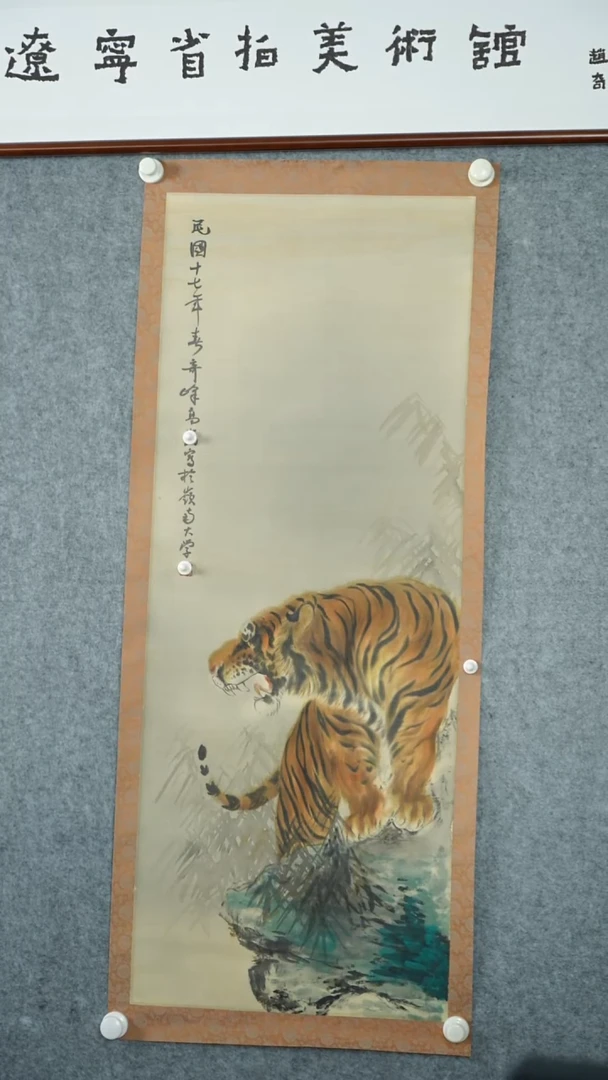 遼寧省拍美術館
趙奇
民國十七年春奇峰高 寫於嶺南大学